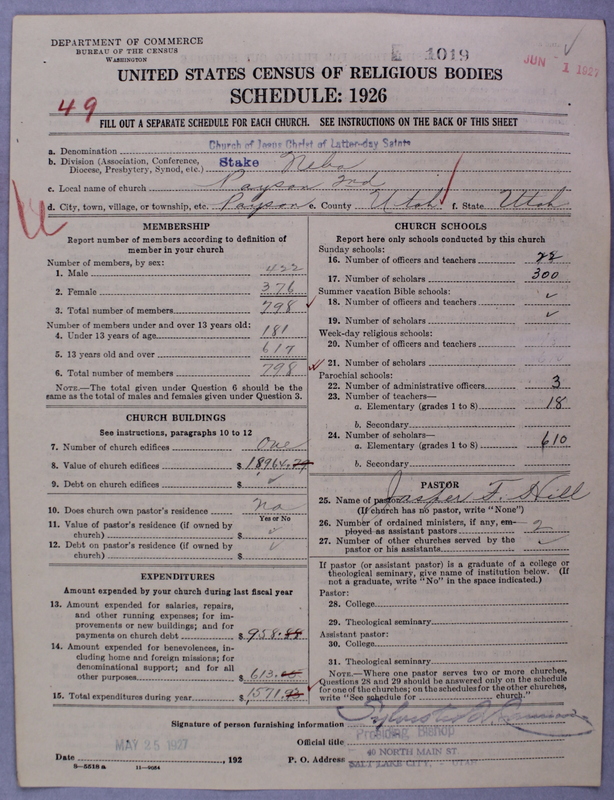 DEPARTMENT OF COMMERCE
BUREAU OF THE CENSUS
WASHINGTON
E 1019
JUN 1 1927
UNITED STATES CENSUS OF RELIGIOUS BODIES
SCHEDULE: 1926
49
FILL OUT A SEPARATE SCHEDULE FOR EACH CHURCH. SEE INSTRUCTIONS ON THE BACK OF THIS SHEET
a. Denomination Church of Jesus Christ of Latter-day Saints
b. Division (Association, Conference, Diocese, Presbytery, Synod, etc.) Stake Nebo
c. Local name of church Payson 2nd
d. City, town, village, or township, etc. Payson e. County Utah f. State Utah
MEMBERSHIP
Report number of members according to definition of member in your church
Number of members, by sex:
1. Male 422
2. Female 376
3. Total number of members 798
Number of members under and over 13 years old:
4. Under 13 years of age 181
5. 13 years old and over 617
6. Total number of members 798
NOTE.—The total given under Question 6 should be the same as the total of males and females given under Question 3.
CHURCH BUILDINGS
See instructions, paragraphs 10 to 12
7. Number of church edifices One
8. Value of church edifices $ 18964.
9. Debt on church edifices $
10. Does church own pastor's residence? No
Yes or No
11. Value of pastor's residence (if owned by church) $
12. Debt on pastor's residence (if owned by church) $
EXPENDITURES
Amount expended by your church during last fiscal year
13. Amount expended for salaries, repairs, and other running expenses; for improvements or new buildings; and for payments on church debt $ 958.
14. Amount expended for benevolences, including home and foreign missions; for denominational support; and for all other purposes $ 613.
15. Total expenditures during year $ 1571.
CHURCH SCHOOLS
Report here only schools conducted by this church
Sunday schools:
16. Number of officers and teachers 22
17. Number of scholars 300
Summer vacation Bible schools:
18. Number of officers and teachers
19. Number of scholars
Week-day religious schools:
20. Number of officers and teachers
21. Number of scholars
Parochial schools:
22. Number of administrative officers 3
23. Number of teachers—
a. Elementary (grades 1 to 8) 18
b. Secondary
24. Number of scholars—
a. Elementary (grades 1 to 8) 610
b. Secondary
PASTOR
25. Name of pastor Jasper F. Hill
(If church has no pastor, write "None")
26. Number of ordained ministers, if any, employed as assistant pastors 2
27. Number of other churches served by the pastor or his assistants
If pastor (or assistant pastor) is a graduate of a college or theological seminary, give name of institution below. (If not a graduate, write "No" in the space indicated.)
Pastor:
28. College
29. Theological seminary
Assistant pastor:
30. College
31. Theological seminary
NOTE.—Where one pastor serves two or more churches, Questions 28 and 29 should be answered only on the schedule for one of the churches; on the schedules for the other churches, write "See schedule for church."
Signature of person furnishing information
Official title Presiding Bishop
MAY 25 1927
Date , 192 P. O. Address 40 NORTH MAIN ST. SALT LAKE CITY, UTAH
8—5518 a 11—9064